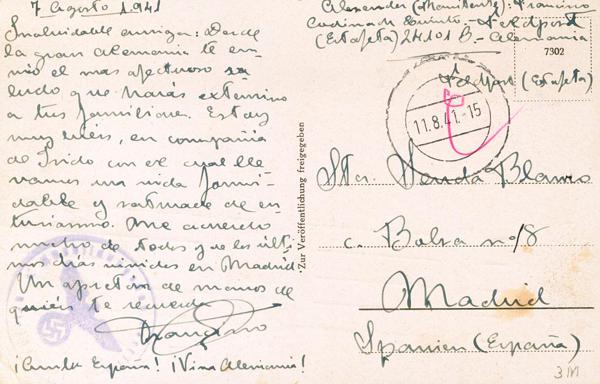 7 Agosto 1.941
Inolvidable amiga: Desde
la gran Alemania te en-
vio el mas afectuoso sa
ludo que harás extensivo
a tus familiares. Estoy
muy bien, en compañia
de Isido con el cual lle-
vamos una vida formi-
dable y saturada de en-
tusiasmo. Me acuerdo
mucho de todos y de los últi-
mos días vividos en Madrid.
Un apretón de manos de
quién te recuerda
Francisco
¡Arriba España! ¡Viva Alemania!
Zur Veröffentlichung freigegeben
Alexender (Remitente): Francisco
- Feldpost
(Estafeta) 24101 B.- Alemania
7302
Feldpost (Estafeta)
11.8.41.-15
Srta. Blanco
c. Bolsa nº 8
Madrid
Spanien (España)
3M